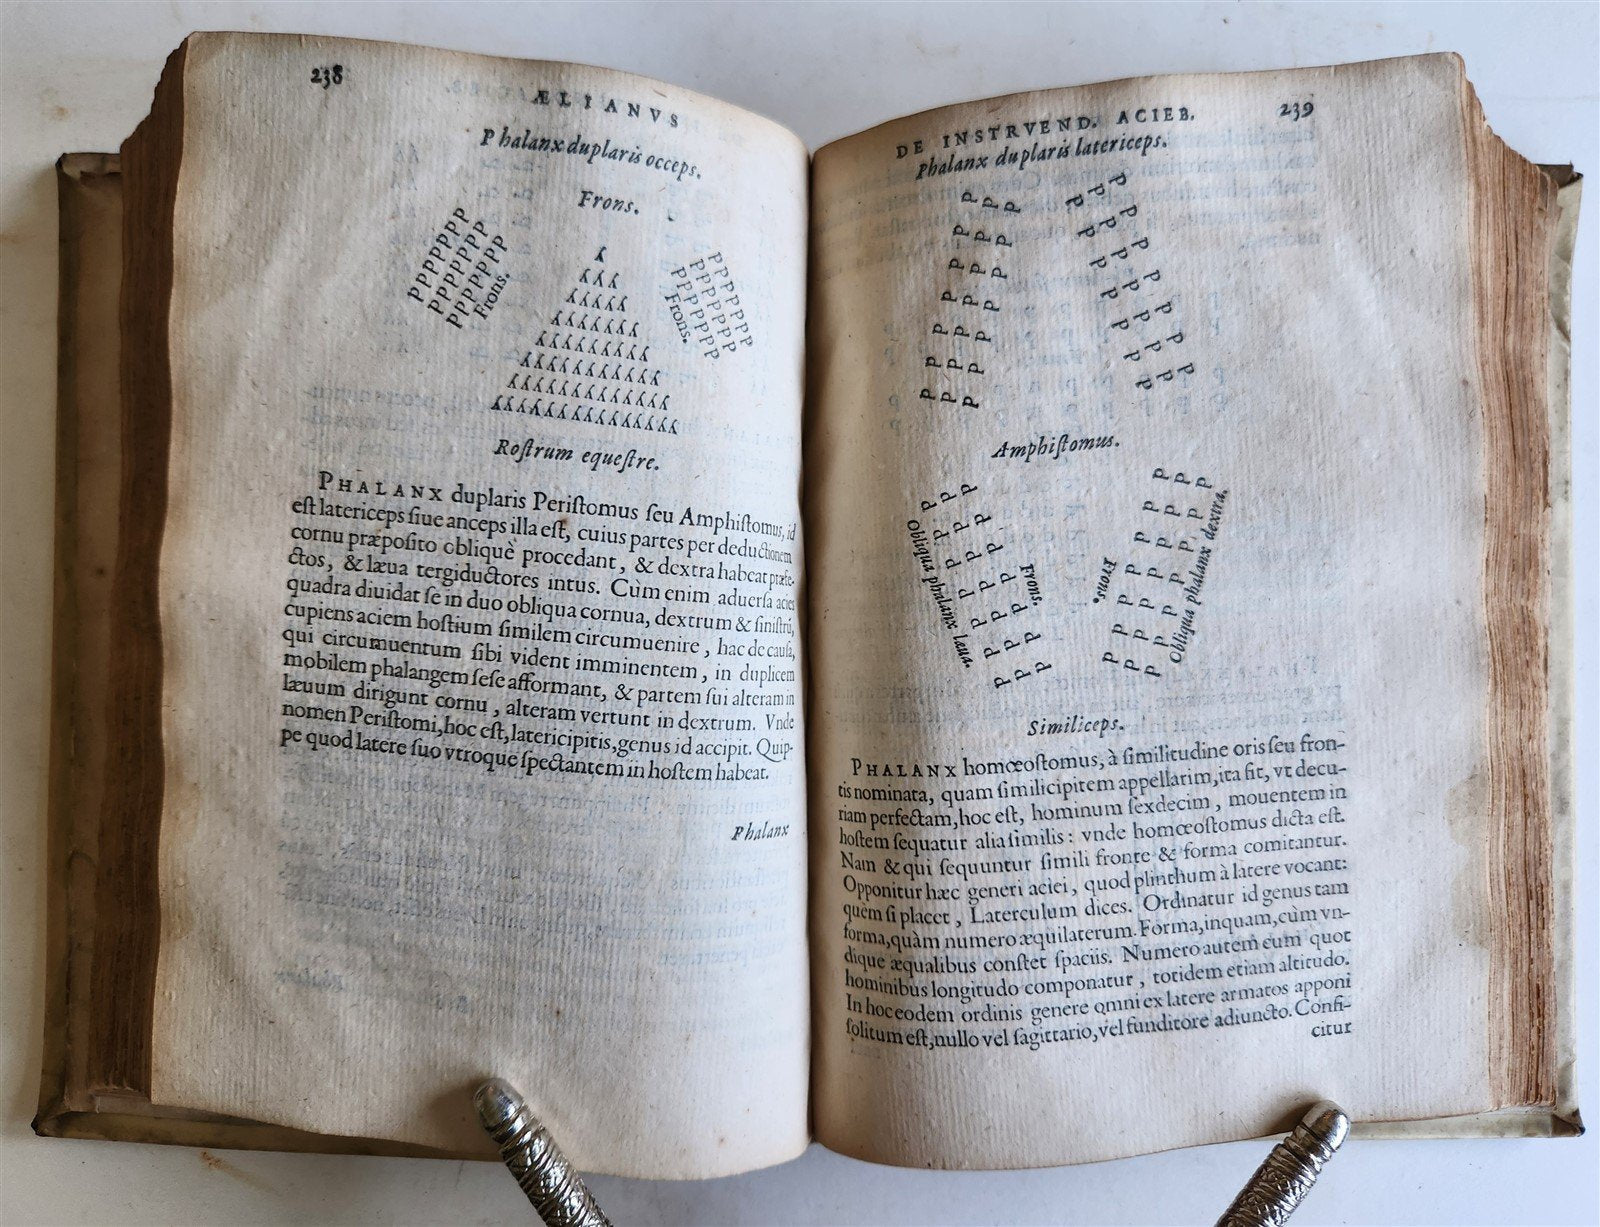 238
ÆLIANVS
Phalanx duplaris occeps.
Frons.
PPPPPPP
PPPPPPP
PPPPPPP
Frons.
PPPPPPP
PPPPPPP
PPPPPPP
Frons.
Roſtrum equeſtre.
PHALANX duplaris Periſtomus ſeu Amphiſtomus, id
eſt latericeps ſiue anceps illa eſt, cuius partes per deductionem
cornu præpoſito obliquè procedant, & dextra habeat præfe-
ctos, & læua tergiductores intus. Cùm enim aduerſa acies
quadra diuidat ſe in duo obliqua cornua, dextrum & ſiniſtrū,
cupiens aciem hoſtium ſimilem circumuenire, hac de cauſa,
qui circumuentum ſibi vident imminentem, in duplicem
mobilem phalangem ſeſe afformant, & partem ſui alteram in
læuum dirigunt cornu, alteram vertunt in dextrum. Vnde
nomen Periſtomi, hoc eſt, latericipitis, genus id accipit. Quip-
pe quod latere ſuo vtroque ſpectantem in hoſtem habeat.
Phalanx
DE INSTRVEND. ACIEB. 239
Phalanx duplaris latericeps.
Amphiſtomus.
Obliqua phalanx læua.
Frons.
Frons.
Obliqua phalanx dextra.
Similiceps.
PHALANX homœoſtomus, à ſimilitudine oris ſeu fron-
tis nominata, quam ſimilicipitem appellarim, ita ſit, vt decu-
riam perfectam, hoc eſt, hominum ſexdecim, mouentem in
hoſtem ſequatur alia ſimilis: vnde homœoſtomus dicta eſt.
Nam & qui ſequuntur ſimili fronte & forma comitantur.
Opponitur hæc generi aciei, quod plinthum à latere vocant:
quem ſi placet, Laterculum dices. Ordinatur id genus tam
forma, quàm numero æquilaterum. Forma, inquam, cùm vn-
dique æqualibus conſtet ſpaciis. Numero autem cum quot
hominibus longitudo componatur, totidem etiam altitudo.
In hoc eodem ordinis genere omni ex latere armatos apponi
ſolitum eſt, nullo vel ſagittario, vel funditore adiuncto. Confi-
citur